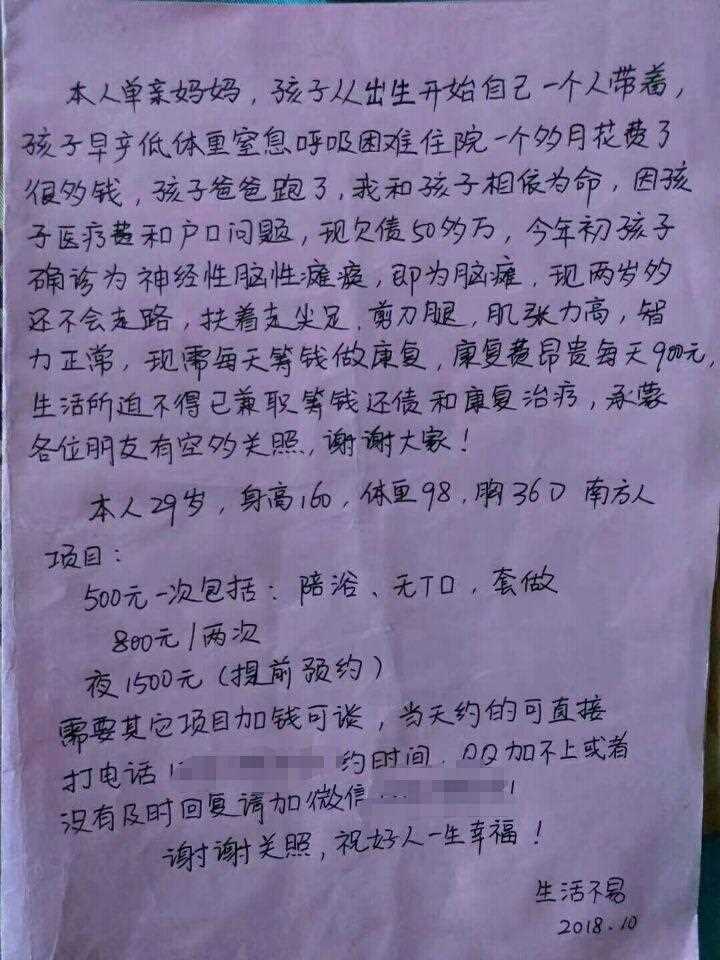 本人单亲妈妈，孩子从出生开始自己一个人带着，
孩子早产低体重窒息呼吸困难住院一个多月花费了
很多钱，孩子爸爸跑了，我和孩子相依为命，因孩
子医疗费和户口问题，现欠债50多万，今年初孩子
确诊为神经性脑性瘫痪，即为脑瘫，现两岁多
还不会走路，扶着走尖足，剪刀腿，肌张力高，智
力正常，现需每天筹钱做康复，康复费昂贵每天900元，
生活所迫不得已兼职筹钱还债和康复治疗，承蒙
各位朋友有空多关照，谢谢大家！
本人29岁，身高160，体重98，胸36D 南方人
项目：
500元一次包括：陪浴、无TD，套做
800元/两次
夜1500元（提前预约）
需要其它项目加钱可谈，当天约的可直接
打电话 约时间，QQ加不上或者
没有及时回复请加微信
谢谢关照，祝好人一生幸福！
生活不易
2018.10